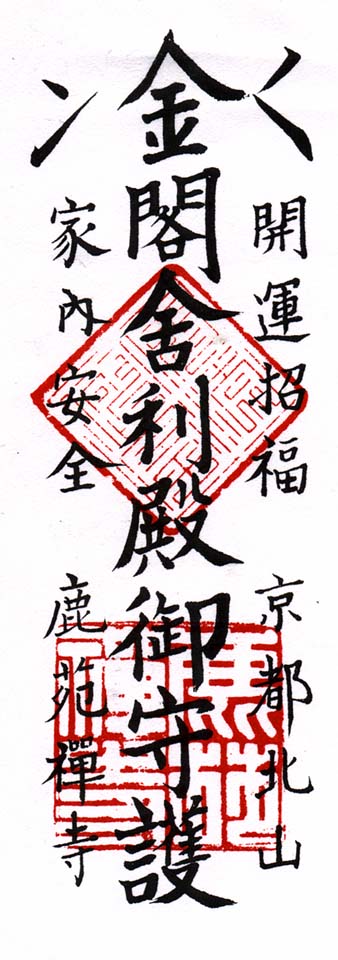 開運招福
京都北山
金閣舎利殿御守護
家内安全
鹿苑禪寺